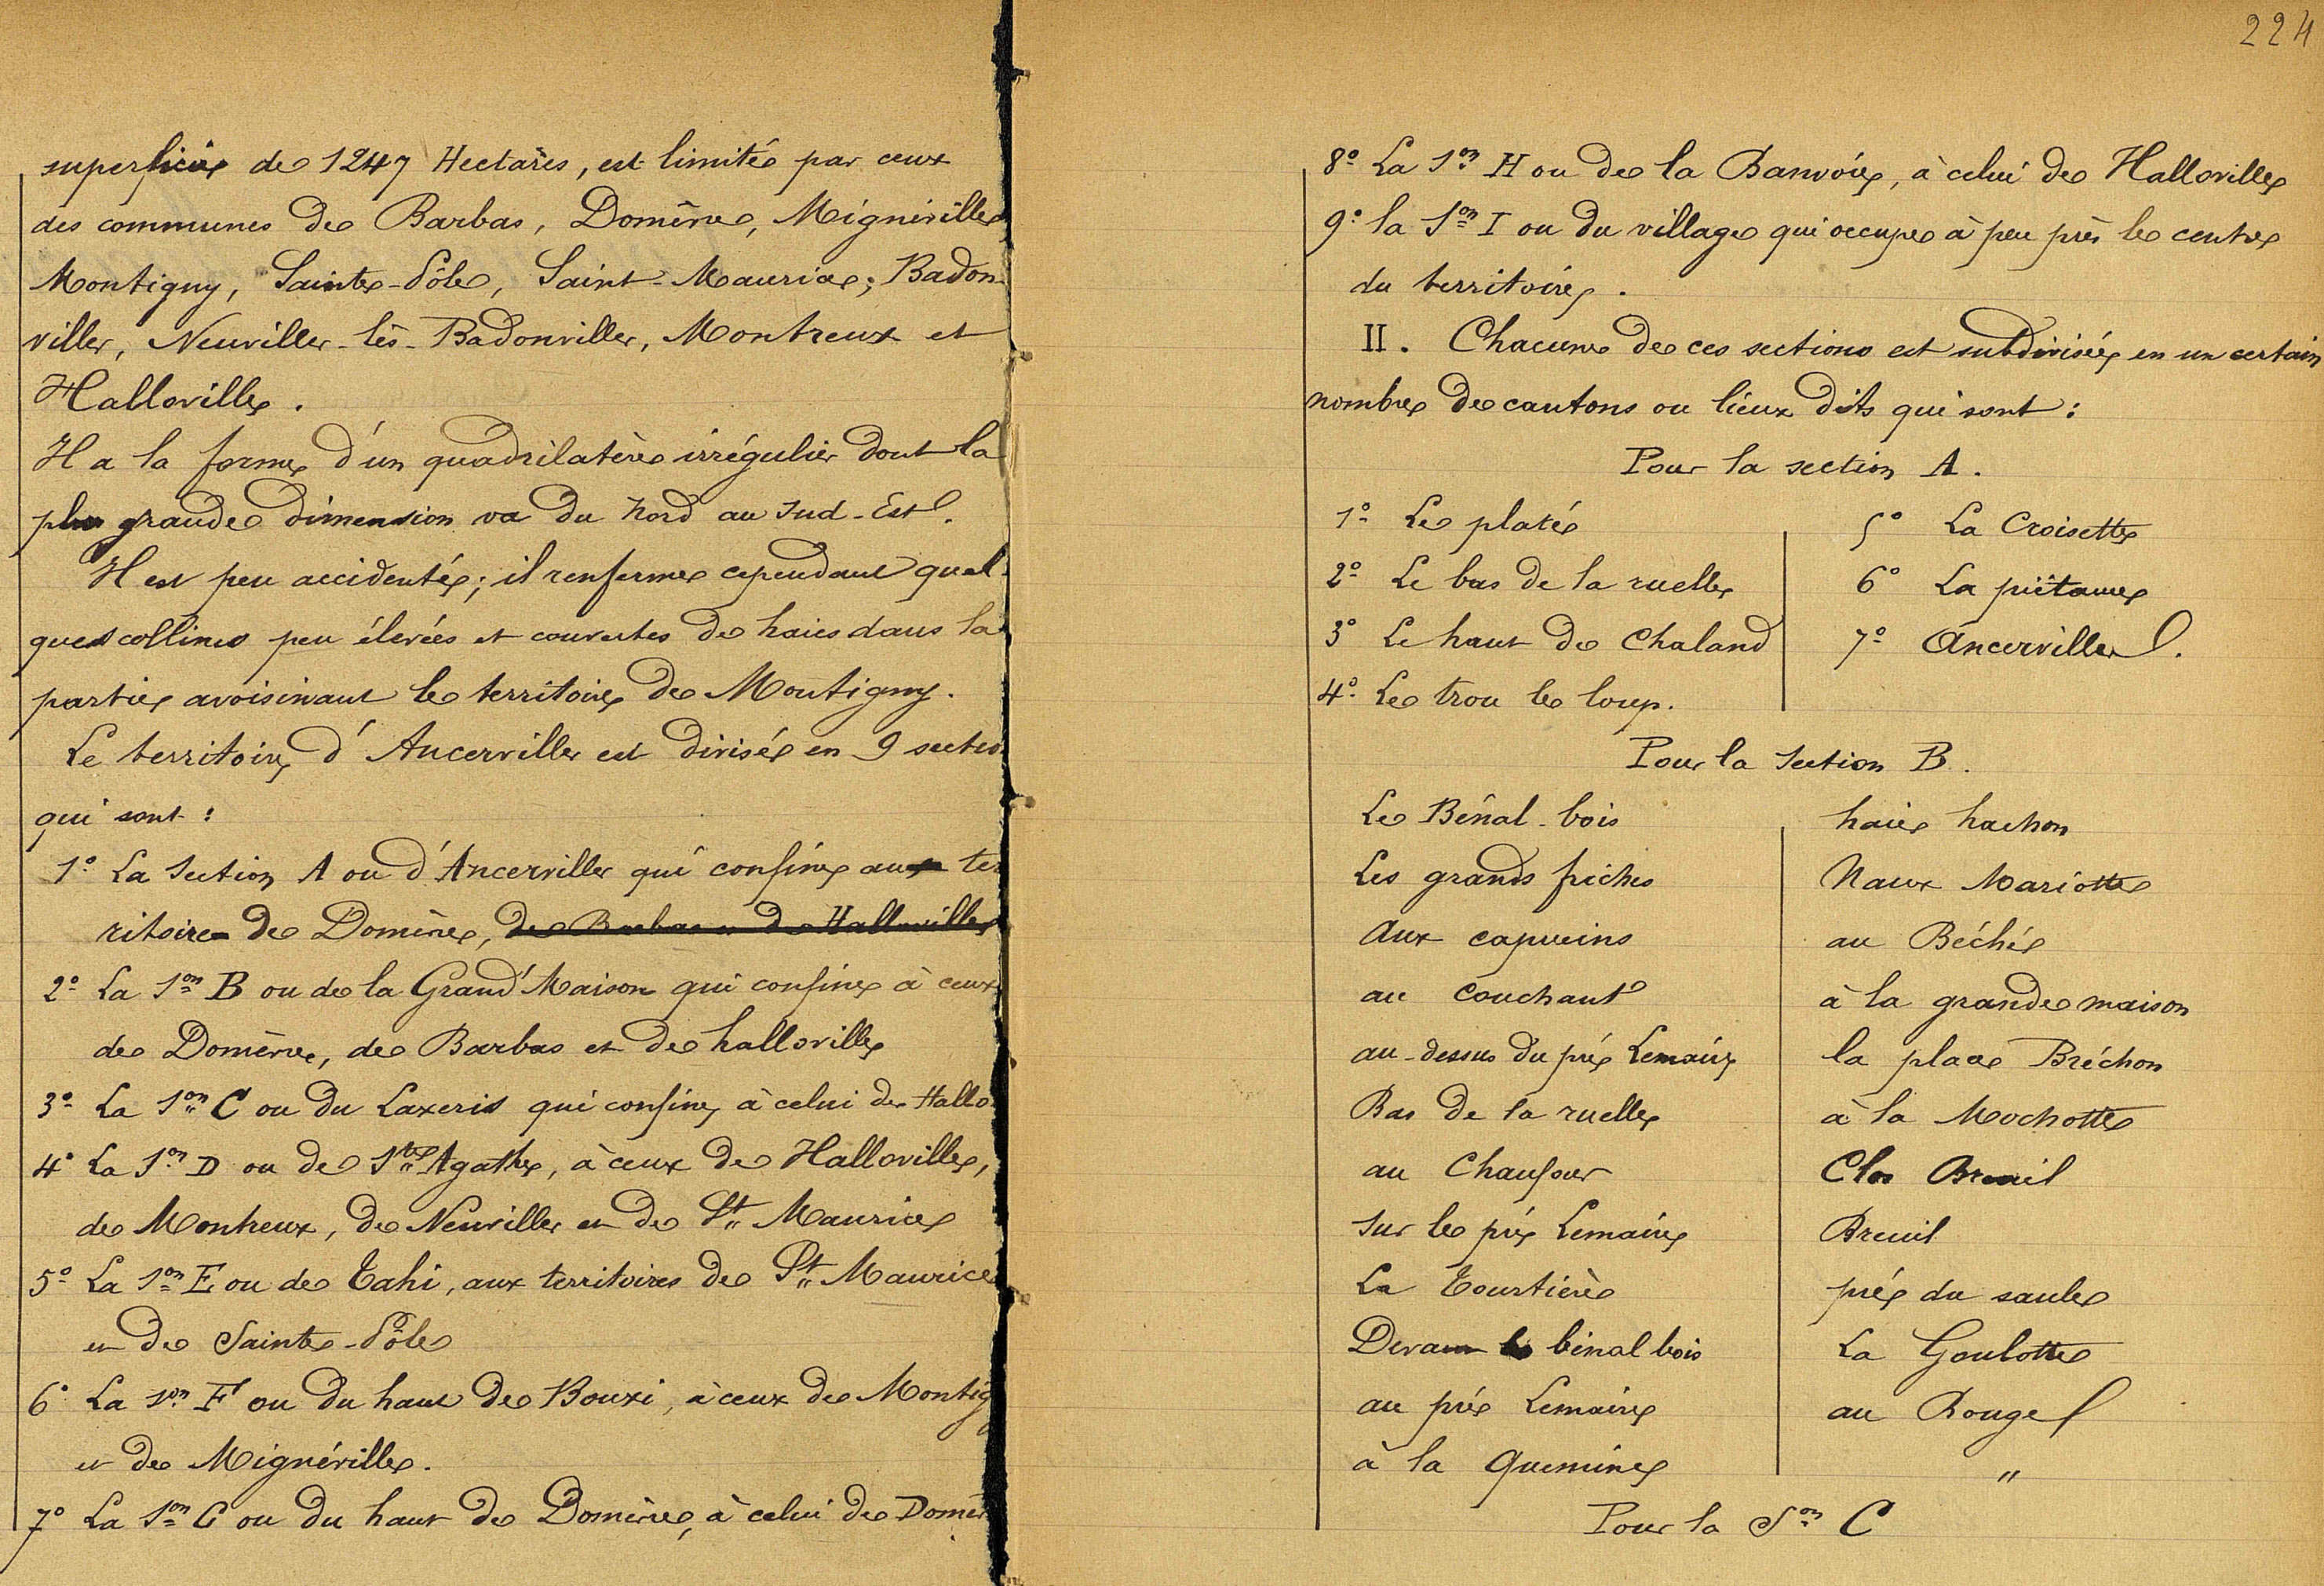 superficie de 1247 Hectares, est limité par ceux
des communes de Barbas, Domèvre, Mignéville
Montigny, Sainte-Pôle, Saint-Maurice; Badon-
viller, Neuviller-lès-Badonviller, Montreux et
Halloville.
Il a la forme d'un quadrilatère irrégulier dont la
plus grande dimension va du Nord au Sud-Est.
Il est peu accidenté; il renferme cependant quel-
ques collines peu élevées et couvertes de haies dans la
partie avoisinant le territoire de Montigny.
Le territoire d'Ancerviller est divisé en 9 sectio
qui sont:
1º La Section A ou d'Ancerviller qui confine au ter
ritoire de Domèvre, de Barbas et de Halloville
2º La Son B ou de la Grand'Maison qui confine à ceux
de Domèvre, de Barbas et de halloville
3º La Son C ou du Laxeris qui confine à celui de Hallo
4º La Son D ou de Ste Agathe, à ceux de Halloville,
de Montreux, de Neuviller et de St Maurice
5º La Son E ou de Tahi, aux territoires de St Maurice
et de Sainte-Pôle
6º La Son F ou du haut de Bouxi, à ceux de Montig
et de Mignéville.
7º La Son G ou du haut de Domèvre, à celui de Domè
224
8º La Son H ou de la Banvoie, à celui de Halloville
9º la Son I ou du village qui occupe à peu près le centre
du territoire.
II. Chacune de ces sections est subdivisée en un certain
nombre de cantons ou lieux dits qui sont:
Pour la section A.
1º Le platé
2º Le bas de la ruelle
3º Le haut de Chaland
4º Le trou le loup.
5º La Croisette
6º La
7º Ancerviller.
Pour la Section B.
Le Bénal-bois
Les grands friches
Aux capucins
au Couchant
au-dessus du pré Lemaire
Bas de la ruelle
au Chaufour
Sur le pré Lemaire
La Tourtière
Devant le bénal bois
au pré Lemaire
à la Quemine
haie hachon
Naux Mariotte
au Béché
à la grande maison
la place Bréchon
à la Mochotte
Clos Breuil
Breuil
pré du saule
La Goulotte
au Rouge
"
Pour la Son C